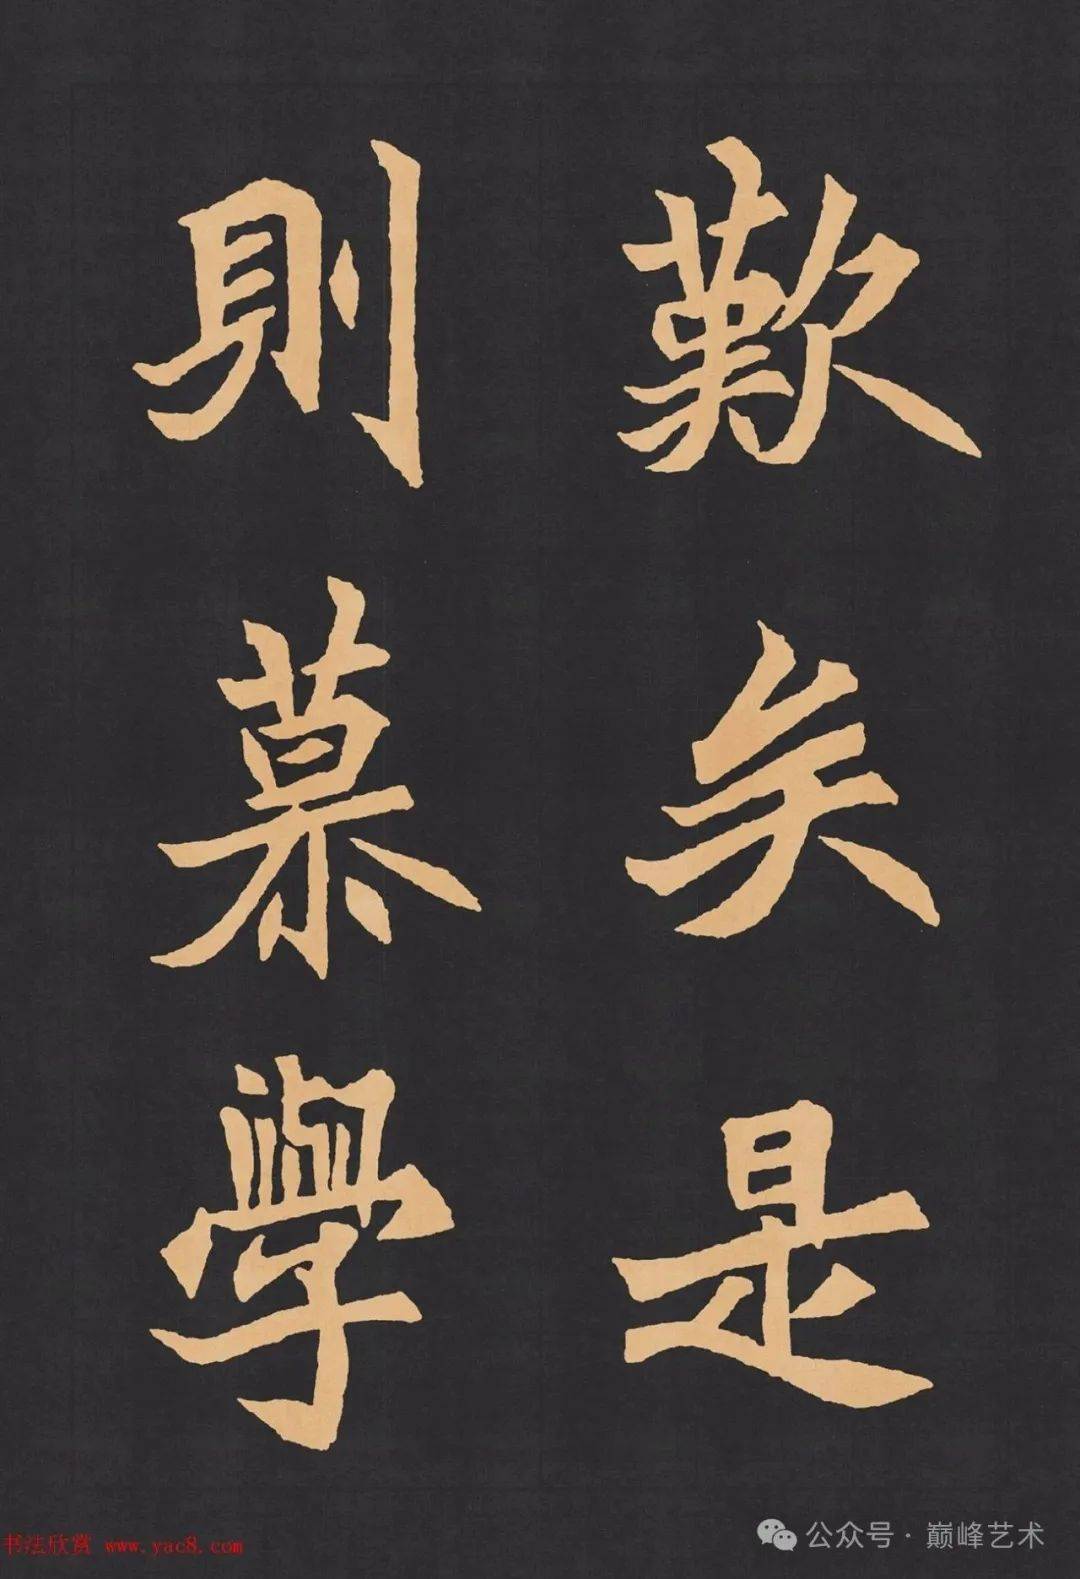 歎矣是
則慕學
书法欣赏 www.yac8.com
公众号·巅峰艺术